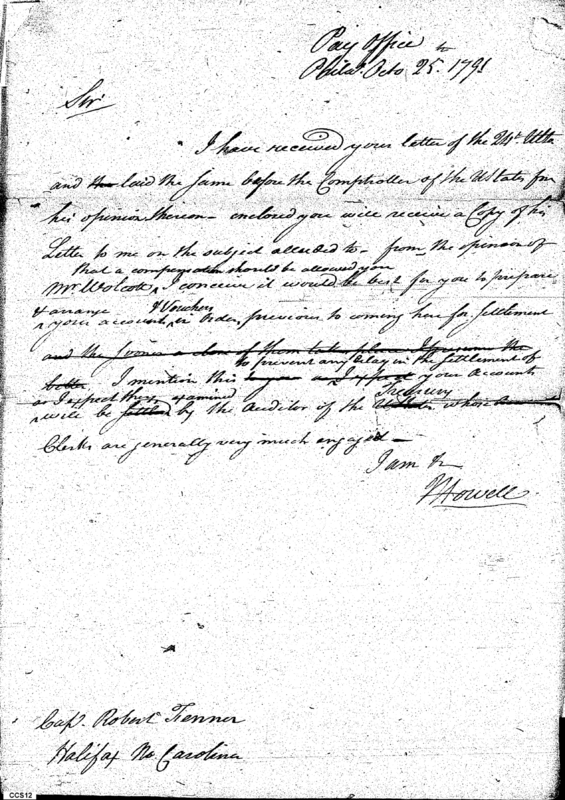 Pay Office
Philaa. Octo 25. 1791
Sir
I have received your letter of the 24t. Ulto
and the laid the same before the Comptroller of the UStates for
his opinion thereon - enclosed you will receive a Copy of his
Letter to me on the subject alluded to - from the opinion of
that a compensation should be allowed you
Mr Wolcott, I conceive it would be best for you to prepare
& arrange & Vouchers
your accounts, in Order, previous to coming here for settlement
and the sooner a close of them take place I presume the
to prevent any delay in the settlement of
better I mention this to you as I expect your Accounts
as I expect they examined Treasury
will be settled by the Auditor of the UStates whose
Clerks are generally very much engaged -
I am &
J Howell
Cap. Robert Fenner
Halifax No. Carolina
CCS12